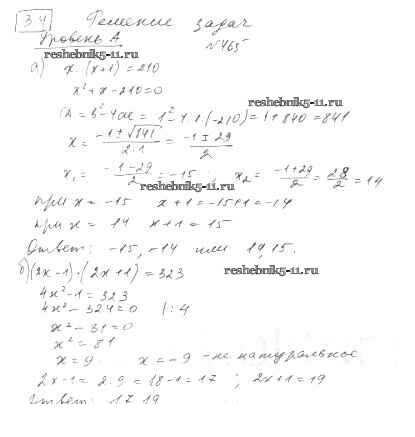 34 Решение задач
Уровень А
№465
reshebnik5-11.ru
а) x·(x+1)=210
x²+x-210=0
reshebnik5-11.ru
D=b²-4ac=1²-4·1·(-210)=1+840=841
x=(-1±√841)/(2·1)=(-1±29)/2
x₁=(-1-29)/2=-15; x₂=(-1+29)/2=28/2=14
reshebnik5-11.ru
при x=-15 x+1=-15+1=-14
при x=14 x+1=15
Ответ: -15,-14 или 14,15.
б)(2x-1)·(2x+1)=323
reshebnik5-11.ru
4x²-1=323
4x²-324=0 |:4
x²-81=0
x²=81
x=9 x=-9 -не натуральное
2x-1=2·9=18-1=17; 2x+1=19
Ответ: 17 19